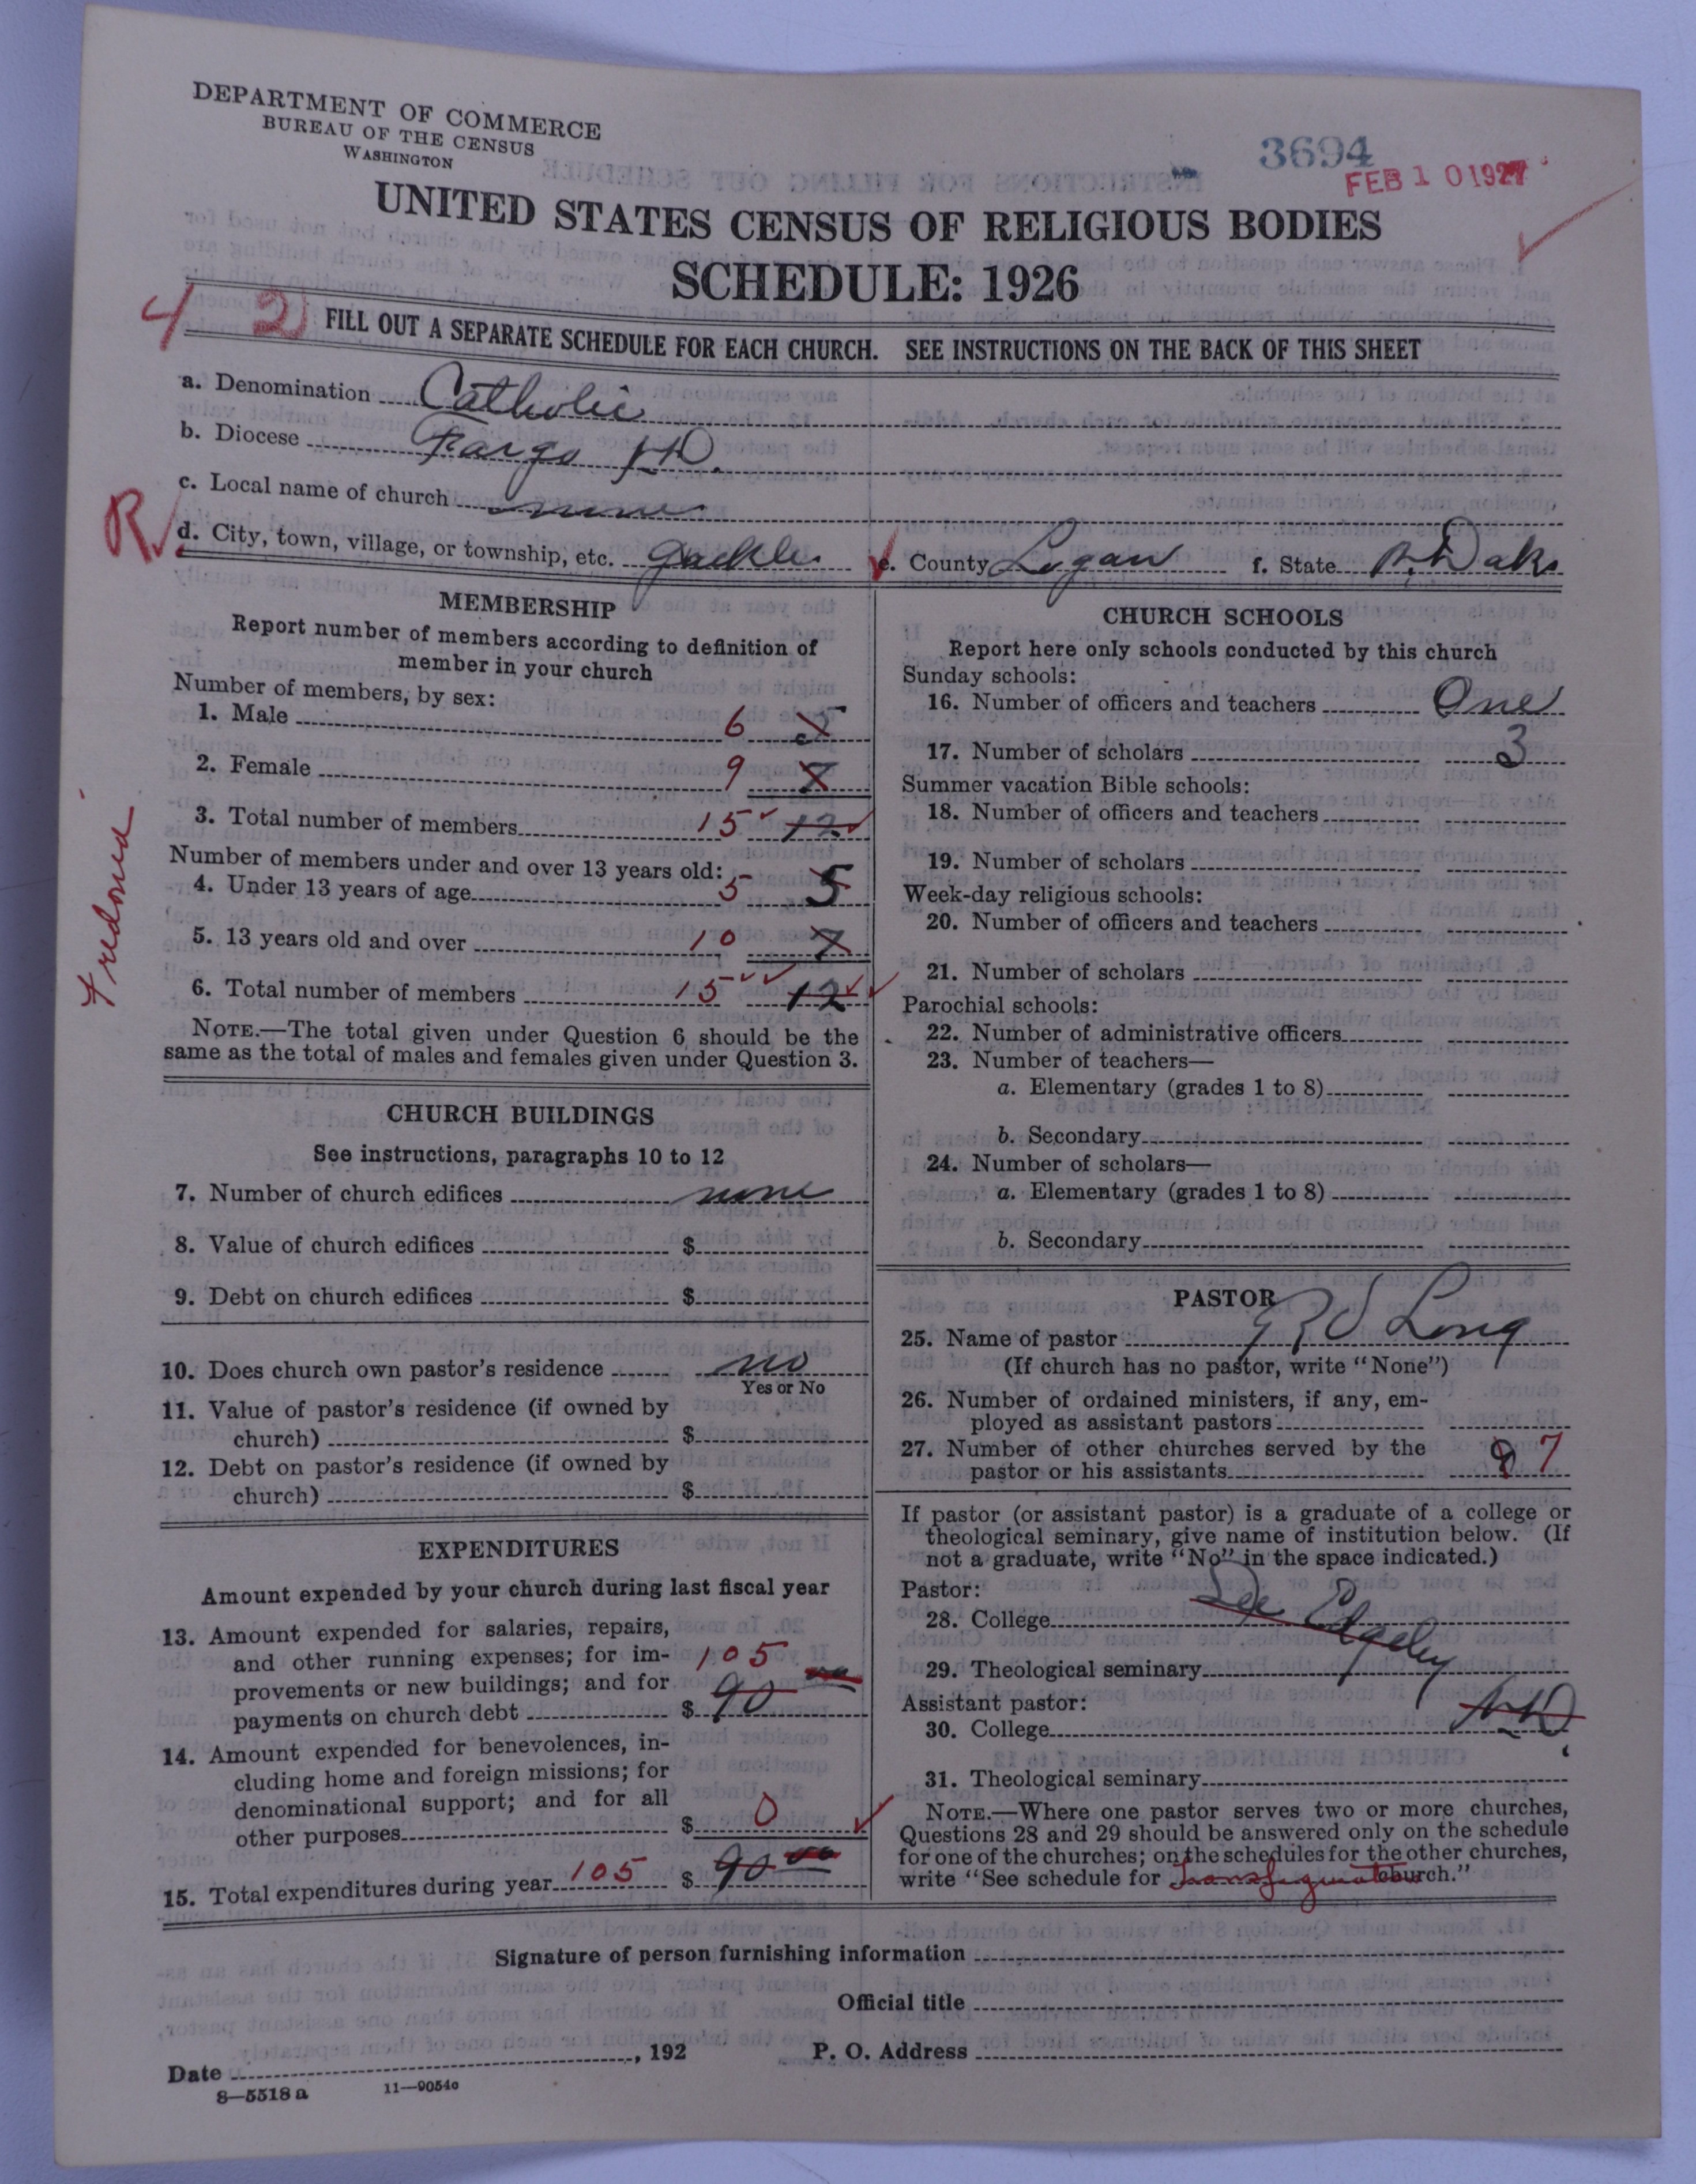 DEPARTMENT OF COMMERCE
BUREAU OF THE CENSUS
WASHINGTON
3694
FEB 10 1927
UNITED STATES CENSUS OF RELIGIOUS BODIES
SCHEDULE: 1926
4 2
FILL OUT A SEPARATE SCHEDULE FOR EACH CHURCH. SEE INSTRUCTIONS ON THE BACK OF THIS SHEET
a. Denomination Catholic
b. Diocese Fargo N.D.
c. Local name of church none
R
d. City, town, village, or township, etc. Gackle e. County Logan f. State N. Dak.
Fredonia
MEMBERSHIP
Report number of members according to definition of
member in your church
Number of members, by sex:
1. Male 6 5
2. Female 9 7
3. Total number of members 15 12
Number of members under and over 13 years old:
4. Under 13 years of age 5 5
5. 13 years old and over 10 7
6. Total number of members 15 12
NOTE.—The total given under Question 6 should be the
same as the total of males and females given under Question 3.
CHURCH BUILDINGS
See instructions, paragraphs 10 to 12
7. Number of church edifices none
8. Value of church edifices $
9. Debt on church edifices $
10. Does church own pastor's residence no
Yes or No
11. Value of pastor's residence (if owned by
church) $
12. Debt on pastor's residence (if owned by
church) $
EXPENDITURES
Amount expended by your church during last fiscal year
13. Amount expended for salaries, repairs,
and other running expenses; for im-
provements or new buildings; and for
payments on church debt $ 105 90 00
14. Amount expended for benevolences, in-
cluding home and foreign missions; for
denominational support; and for all
other purposes $ 0
15. Total expenditures during year 105 $ 90 00
CHURCH SCHOOLS
Report here only schools conducted by this church
Sunday schools:
16. Number of officers and teachers One
17. Number of scholars 3
Summer vacation Bible schools:
18. Number of officers and teachers
19. Number of scholars
Week-day religious schools:
20. Number of officers and teachers
21. Number of scholars
Parochial schools:
22. Number of administrative officers
23. Number of teachers—
a. Elementary (grades 1 to 8)
b. Secondary
24. Number of scholars—
a. Elementary (grades 1 to 8)
b. Secondary
PASTOR
25. Name of pastor Long
(If church has no pastor, write "None")
26. Number of ordained ministers, if any, em-
ployed as assistant pastors
27. Number of other churches served by the
pastor or his assistants 8 7
If pastor (or assistant pastor) is a graduate of a college or
theological seminary, give name of institution below. (If
not a graduate, write "No" in the space indicated.)
Pastor:
28. College See Edgeley
29. Theological seminary
Assistant pastor:
30. College N.D.
31. Theological seminary
NOTE.—Where one pastor serves two or more churches,
Questions 28 and 29 should be answered only on the schedule
for one of the churches; on the schedules for the other churches,
write "See schedule for Transfiguration church."
Signature of person furnishing information
Official title
Date , 192 P. O. Address
8—5518 a 11—9054c